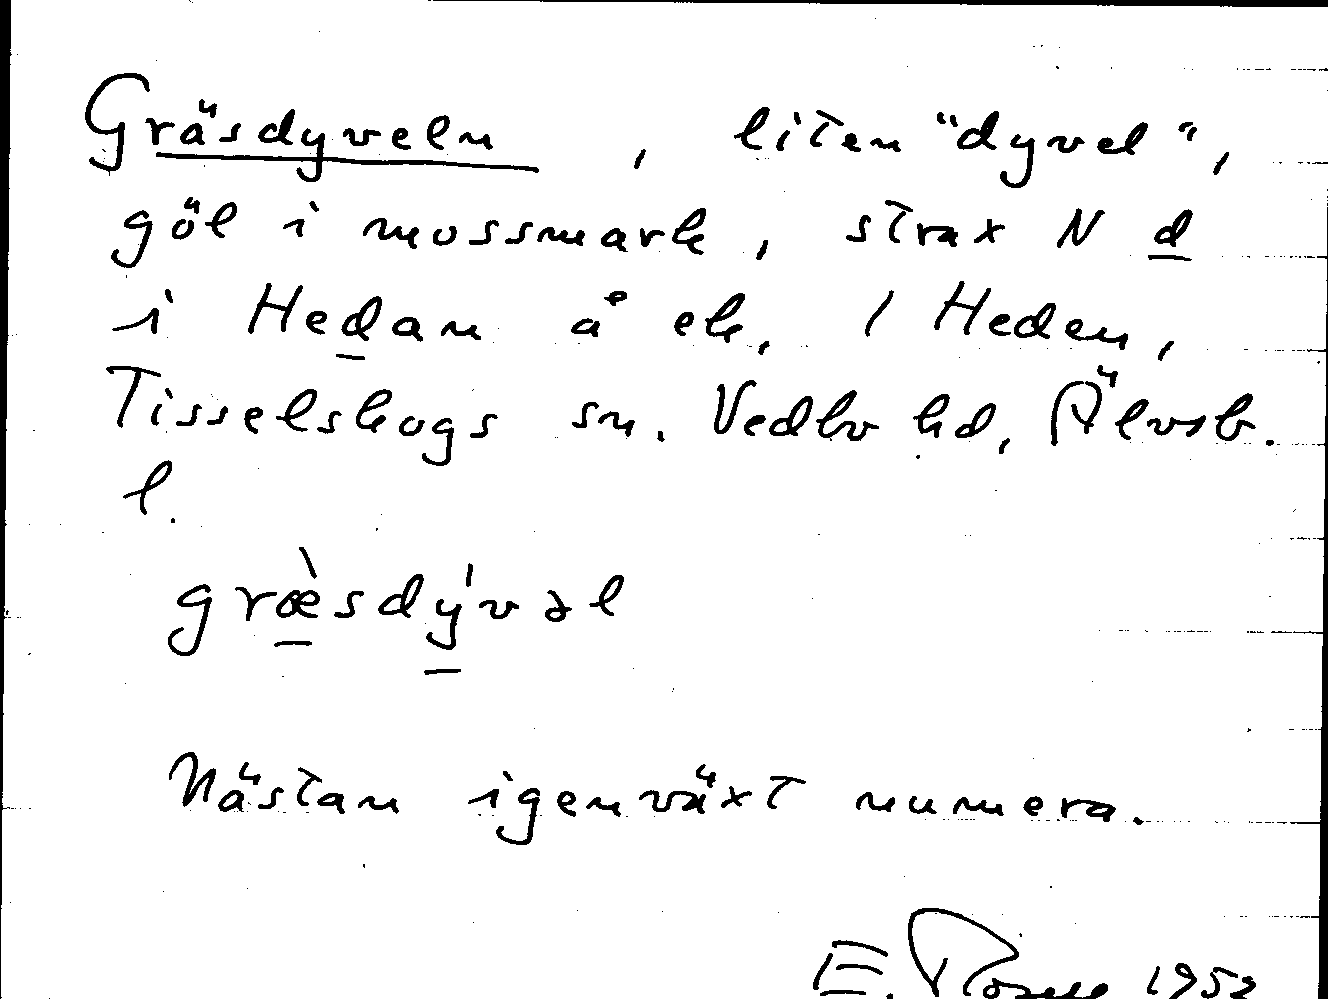 Gräsdyveln, liten "dyvel",
göl i mossmark, strax N d
i Hedan å ek, 1 Heden,
Tisselskogs sn. Vedbo hd, Älvsb.
l.
græ̀sdývəl
Nästan igenväxt numera.
E. 1952